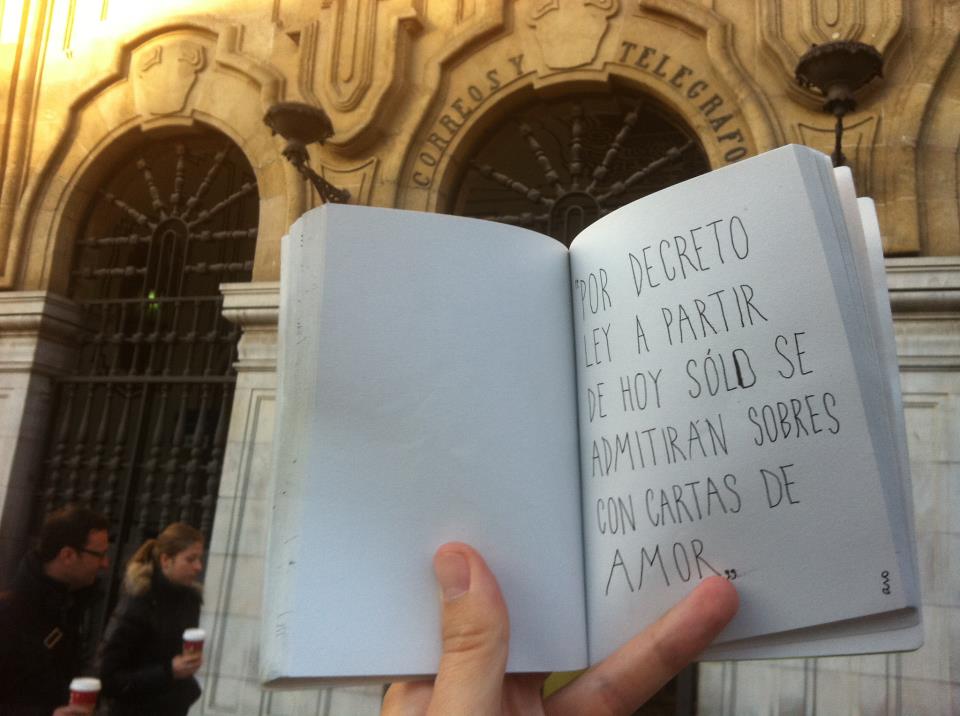 CORREOS Y TELEGRAFO
"POR DECRETO
LEY A PARTIR
DE HOY SÓLO SE
ADMITIRÁN SOBRES
CON CARTAS DE
AMOR"